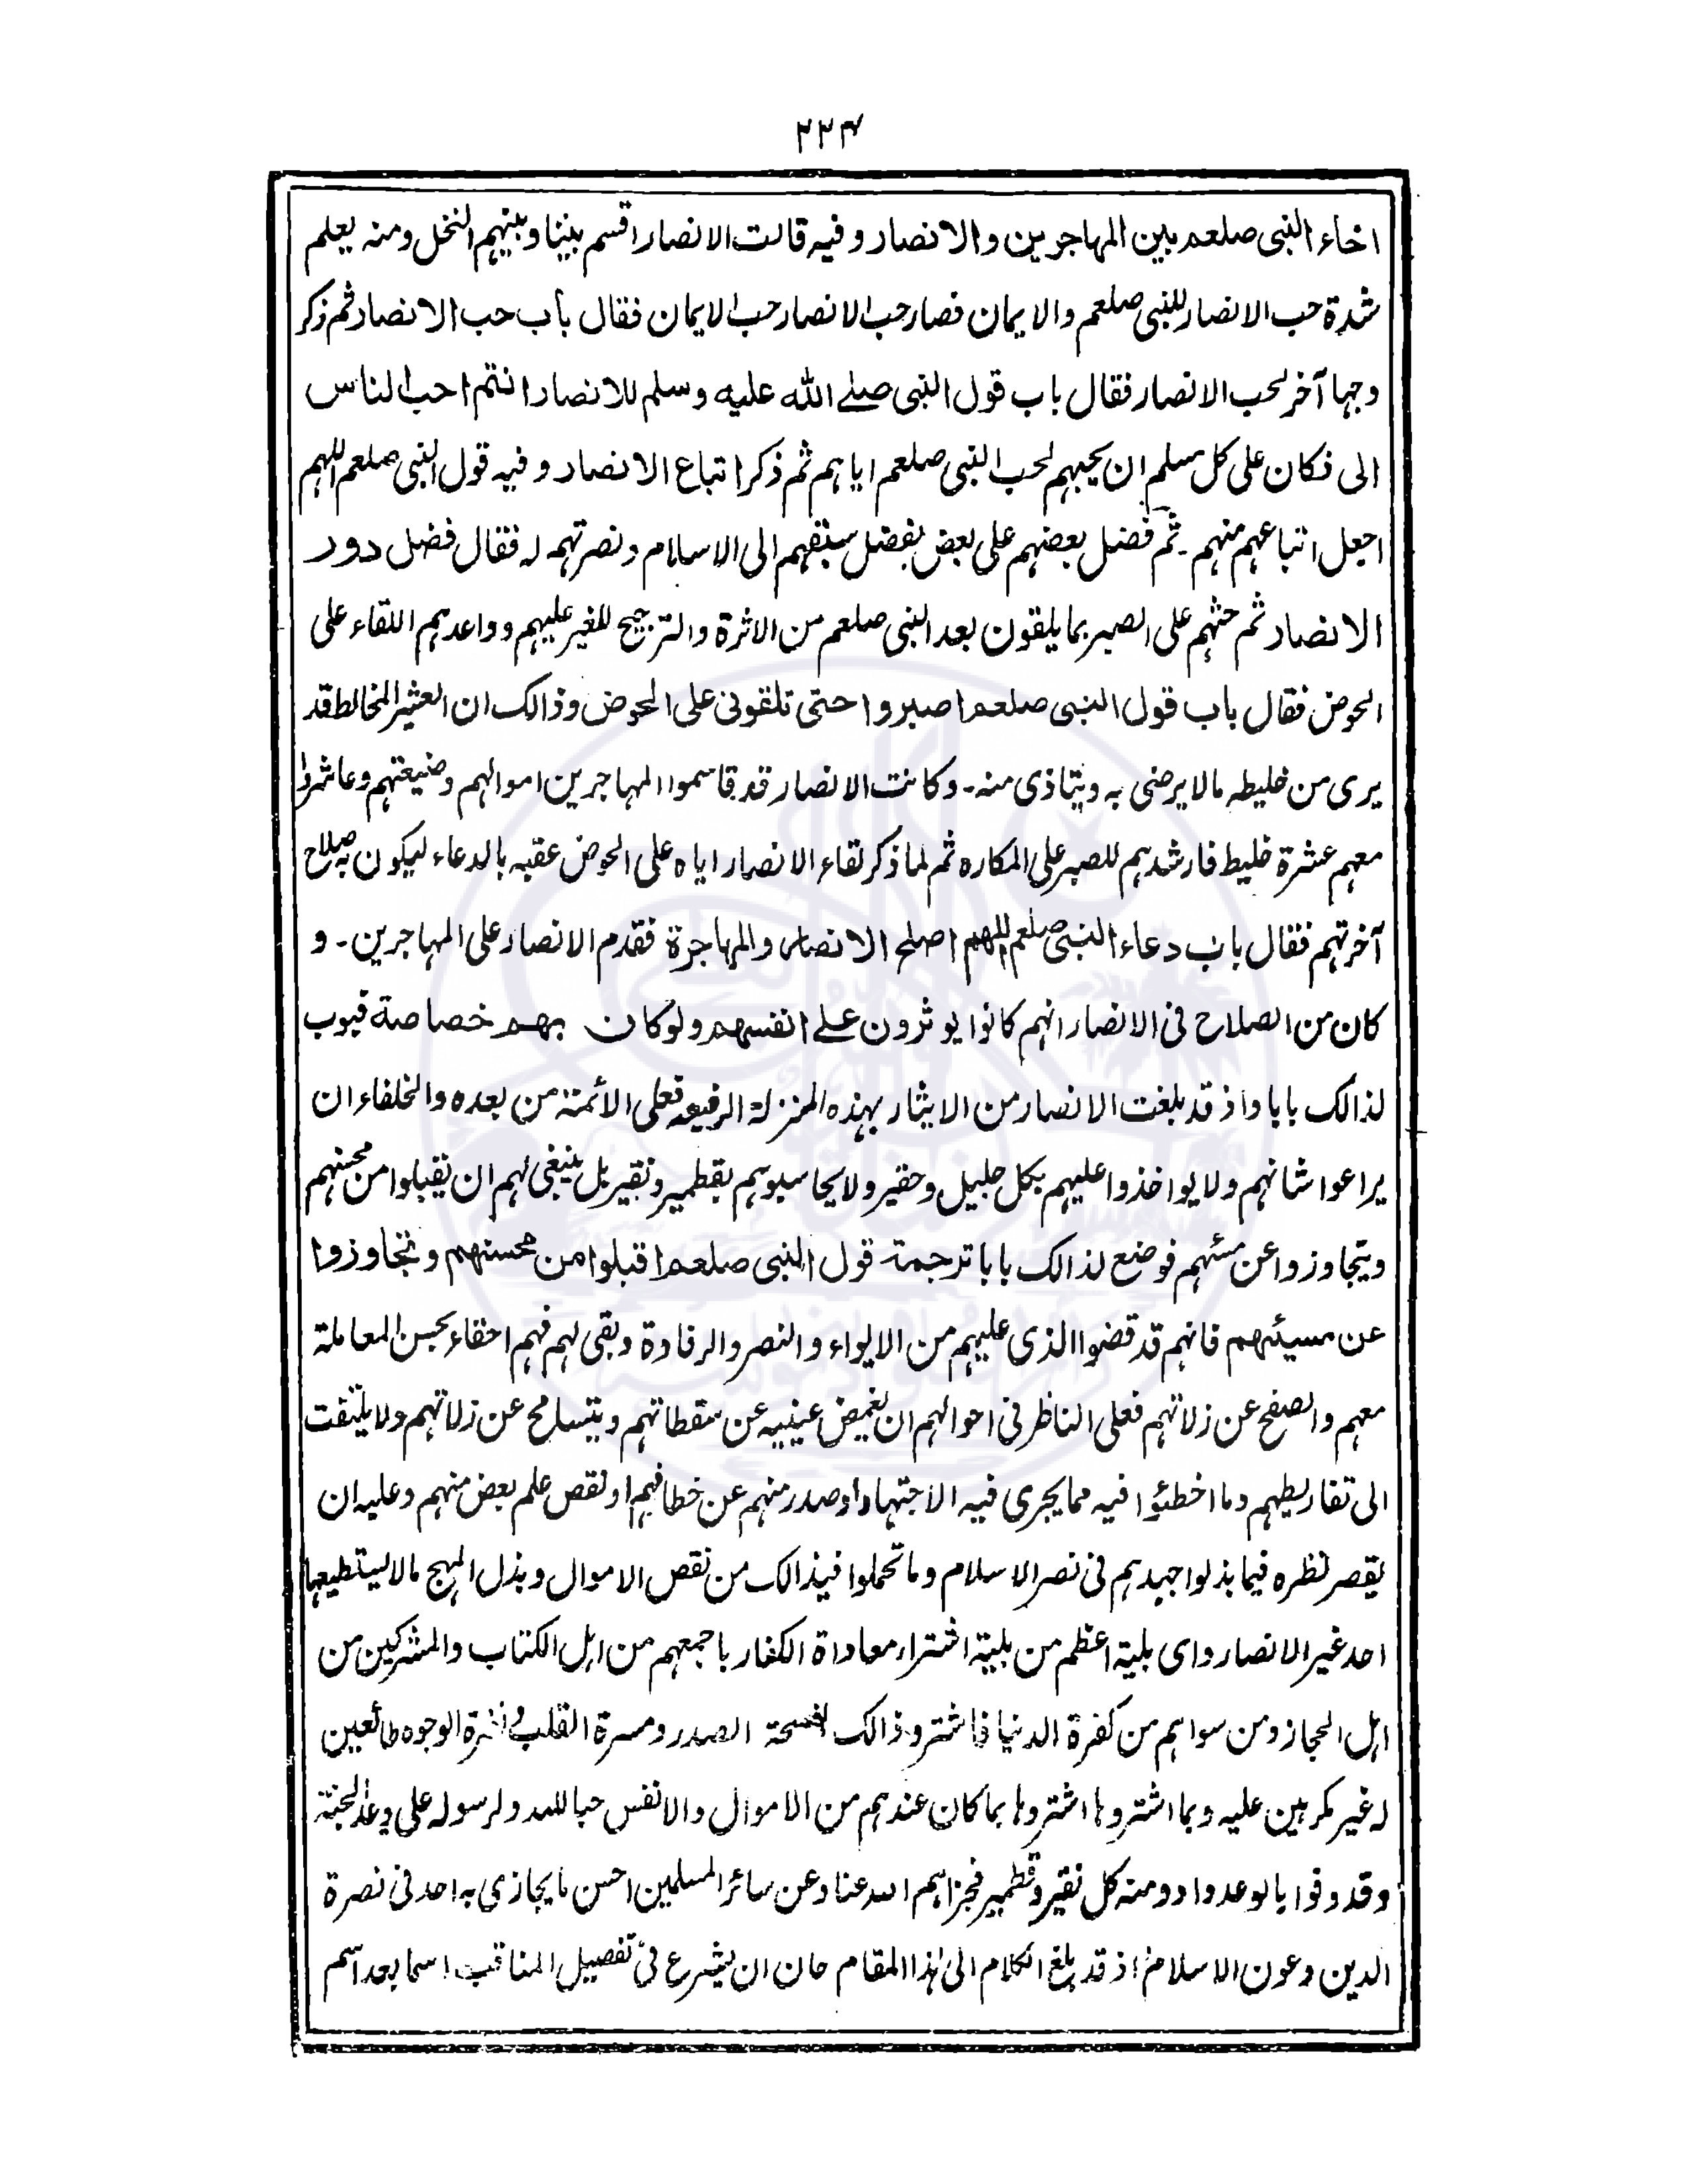 ٢٢٣
اخاء النبى صلعم بين المهاجرين والانصار وفيه قالت الانصار اقسم بيننا وبينهم النخل ومنه يعلم
شدة حب الانصار للنبى صلعم والايمان فصار حب الانصار حب الايمان فقال باب حب الانصار ثم ذكر
وجها آخر لحب الانصار فقال باب قول النبى صلے الله عليه وسلم للانصار انتم احب الناس
الى فكان على كل مسلم ان يحبهم لحب النبى صلعم اياهم ثم ذكر اتباع الانصار وفيه قول النبى صلعم اللهم
اجعل اتباعهم منهم۔ ثم فضل بعضهم على بعض بفضل سبقهم الى الاسلام ونصرتهم له فقال فضل دور
الانصار ثم حثهم على الصبر بما يلقون بعد النبى صلعم من الاثرة والترجيح للغير عليهم وواعدهم اللقاء على
الحوض فقال باب قول النبى صلعم اصبروا حتى تلقونى على الحوض وذالك ان العشير المخالط قد
يرى من خليطه مالا يرضى به ويتاذى منه۔ وكانت الانصار قد قاسموا المهاجرين اموالهم وضيعتهم وعاشروا
معهم عشرة خليط فارشدهم للصبر على المكاره ثم لما ذكر لقاء الانصار اياه على الحوض عقبه بالدعاء ليكون به صلاح
آخرتهم فقال باب دعاء النبى صلعم اللهم اصلح الانصار والمهاجرة فقدم الانصار على المهاجرين۔ و
كان من الصلاح فى الانصار انهم كانوا يوثرون علے انفسهم ولوكان بهم خصاصة فبوب
لذالك بابا واذ قد بلغت الانصار من الايثار بهذه المنزلة الرفيعة فعلى الأئمة من بعده والخلفاء ان
يراعوا شانهم ولا يواخذوا عليهم بكل جليل وحقير ولا يحاسبوهم بقطمير ونقير بل ينبغى لهم ان يقبلوا من محسنهم
ويتجاوزوا عن مسئهم فوضع لذالك بابا ترجمته قول النبى صلعم اقبلوا من محسنهم وتجاوزوا
عن مسيئهم فانهم قد قضوا الذى عليهم من الايواء والنصر والرفادة وبقى لهم فهم احقاء بحسن المعاملة
معهم والصفح عن زلاتهم فعلى الناظر فى احوالهم ان يغمض عينيه عن سقطاتهم ويتسامح عن زلاتهم ولا يلتفت
الى تفاريطهم وما اخطئوا فيه مما يجرى فيه الاجتهاد او صدر منهم عن خطا فهم او نقص علم بعض منهم وعليه ان
يقصر نظره فيما بذلوا جهدهم فى نصر الاسلام وما تحملوا فيذالك من نقص الاموال وبذل المهج مالا يستطيعها
احد غير الانصار واى بلية اعظم من بلية اشتراء معاداة الكفار باجمعهم من اهل الكتاب والمشركين من
اهل الحجاز ومن سواهم من كفرة الدنيا فاشتروذالك لفسحة الصدر ومسرة القلب ونضرة الوجوه طائعين
له غير مكرهين عليه وبما اشتروها اشتروها بما كان عندهم من الاموال والانفس حبا لله ولرسوله على وعد الجنة
وقد وفوا بالوعد وادوا منه كل نقير وقطمير فجزاهم الله عنا وعن سائر المسلمين احسن ما يجازي به احد فى نصرة
الدين وعون الاسلام اذ قد بلغ الكلام الى هذا المقام حان ان يشرع فى تفصيل المناقب اسما بعد اسم